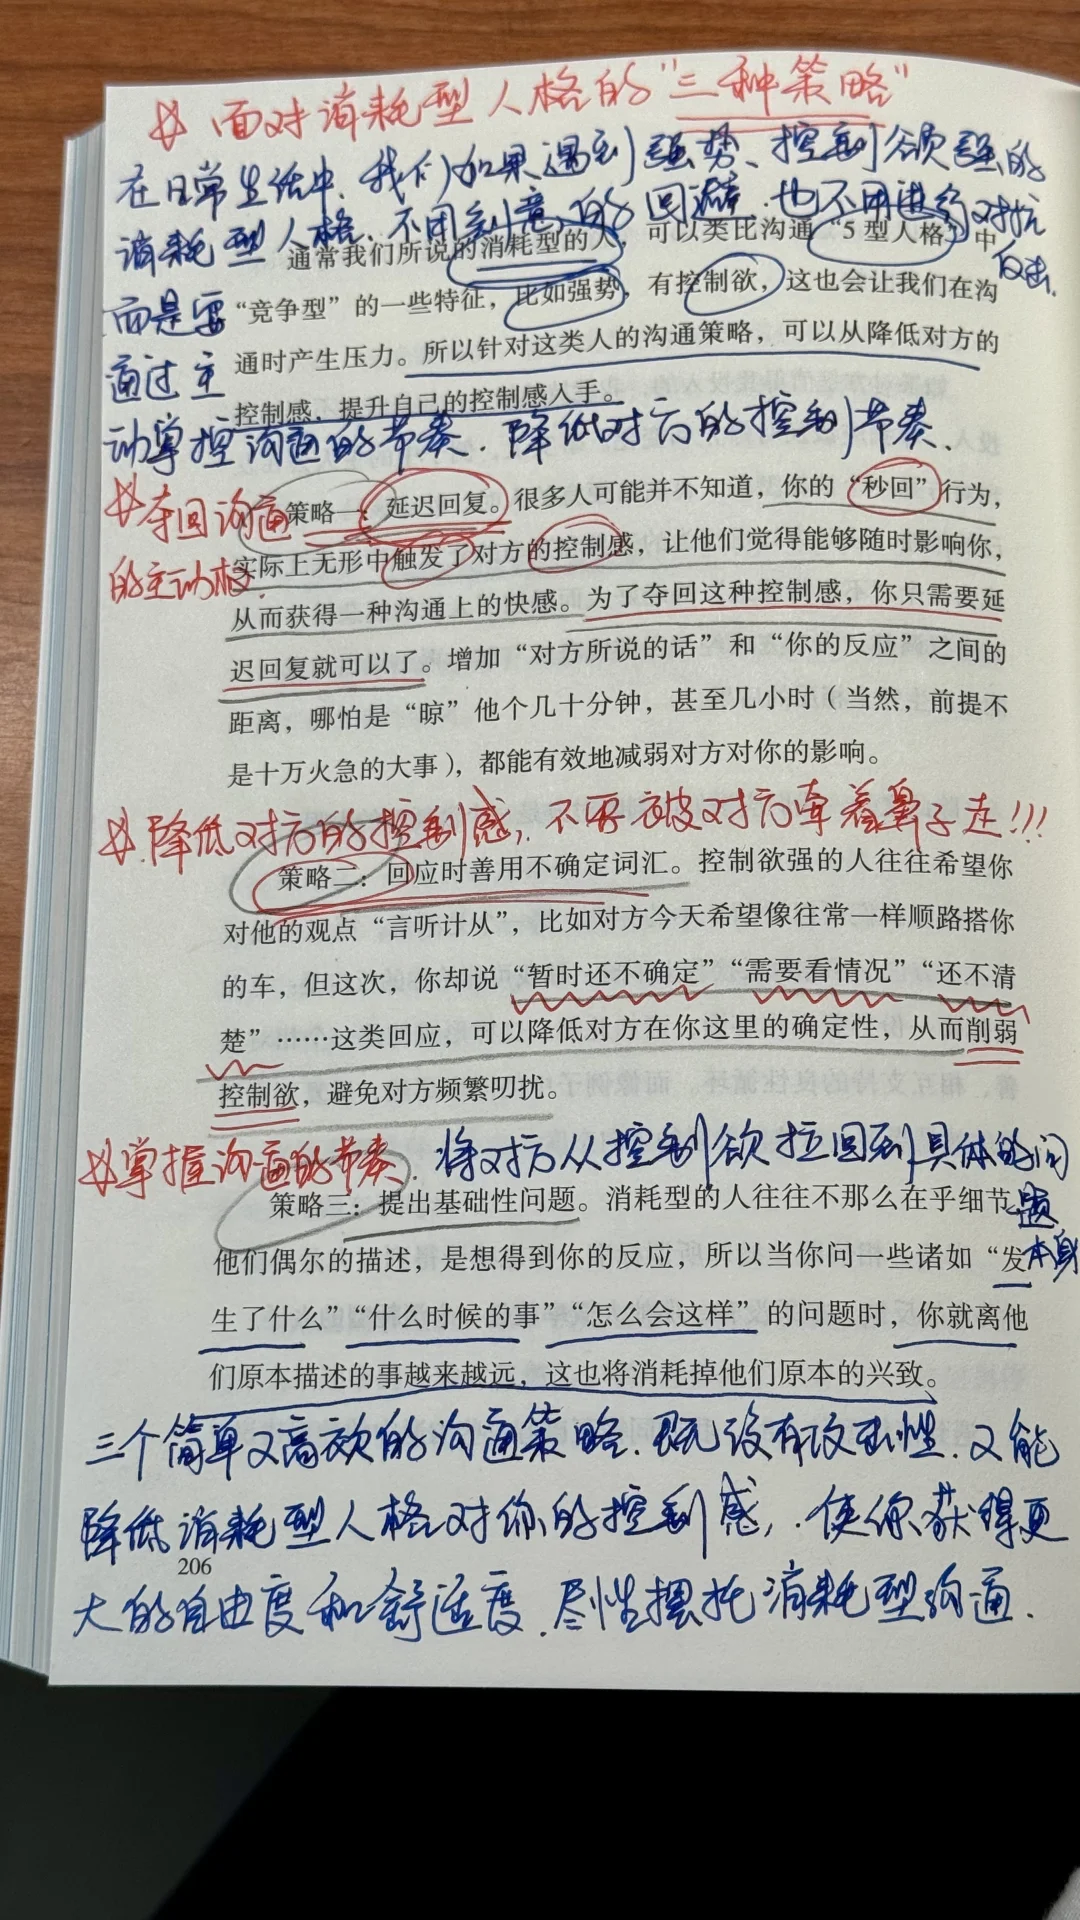 面对消耗型人格的“三种策略”
在日常生活中,我们如果遇到强势、控制欲强的
消耗型人格,不用刻意的回避,也不用进行对抗
反击.
通常我们所说的消耗型的人,可以类比沟通“5型人格”中
而是要
“竞争型”的一些特征,比如强势,有控制欲,这也会让我们在沟
通过主
通时产生压力。所以针对这类人的沟通策略,可以从降低对方的
控制感,提升自己的控制感入手。
动掌控沟通的节奏.降低对方的控制节奏.
夺回沟通
策略一:延迟回复。很多人可能并不知道,你的“秒回”行为,
的主动权.
实际上无形中触发了对方的控制感,让他们觉得能够随时影响你,
从而获得一种沟通上的快感。为了夺回这种控制感,你只需要延
迟回复就可以了。增加“对方所说的话”和“你的反应”之间的
距离,哪怕是“晾”他个几十分钟,甚至几小时(当然,前提不
是十万火急的大事),都能有效地减弱对方对你的影响。
降低对方的控制感,不要被对方牵着鼻子走!!!
策略二:回应时善用不确定词汇。控制欲强的人往往希望你
对他的观点“言听计从”,比如对方今天希望像往常一样顺路搭你
的车,但这次,你却说“暂时还不确定”“需要看情况”“还不清
楚”……这类回应,可以降低对方在你这里的确定性,从而削弱
控制欲,避免对方频繁叨扰。
掌握沟通的节奏.将对方从控制欲拉回到具体的问
题
本身
策略三:提出基础性问题。消耗型的人往往不那么在乎细节,
他们偶尔的描述,是想得到你的反应,所以当你问一些诸如“发
生了什么”“什么时候的事”“怎么会这样”的问题时,你就离他
们原本描述的事越来越远,这也将消耗掉他们原本的兴致。
三个简单又高效的沟通策略.既没有攻击性.又能
降低消耗型人格对你的控制感,.使你获得更
206
大的自由度和舒适度.尽性摆托消耗型沟通.